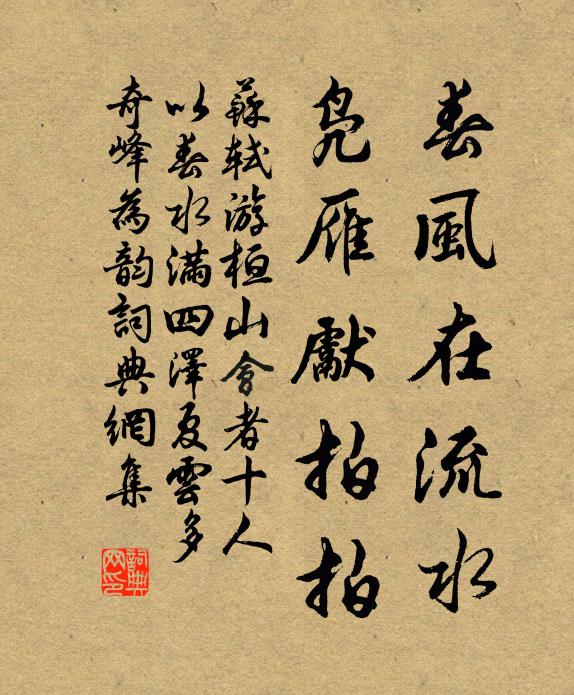 春風在流水
鳧雁獻拍拍
蘇軾游桓山會者十人
以春水滿四澤夏雲多
奇峰為韵詞典網集
詞典网印